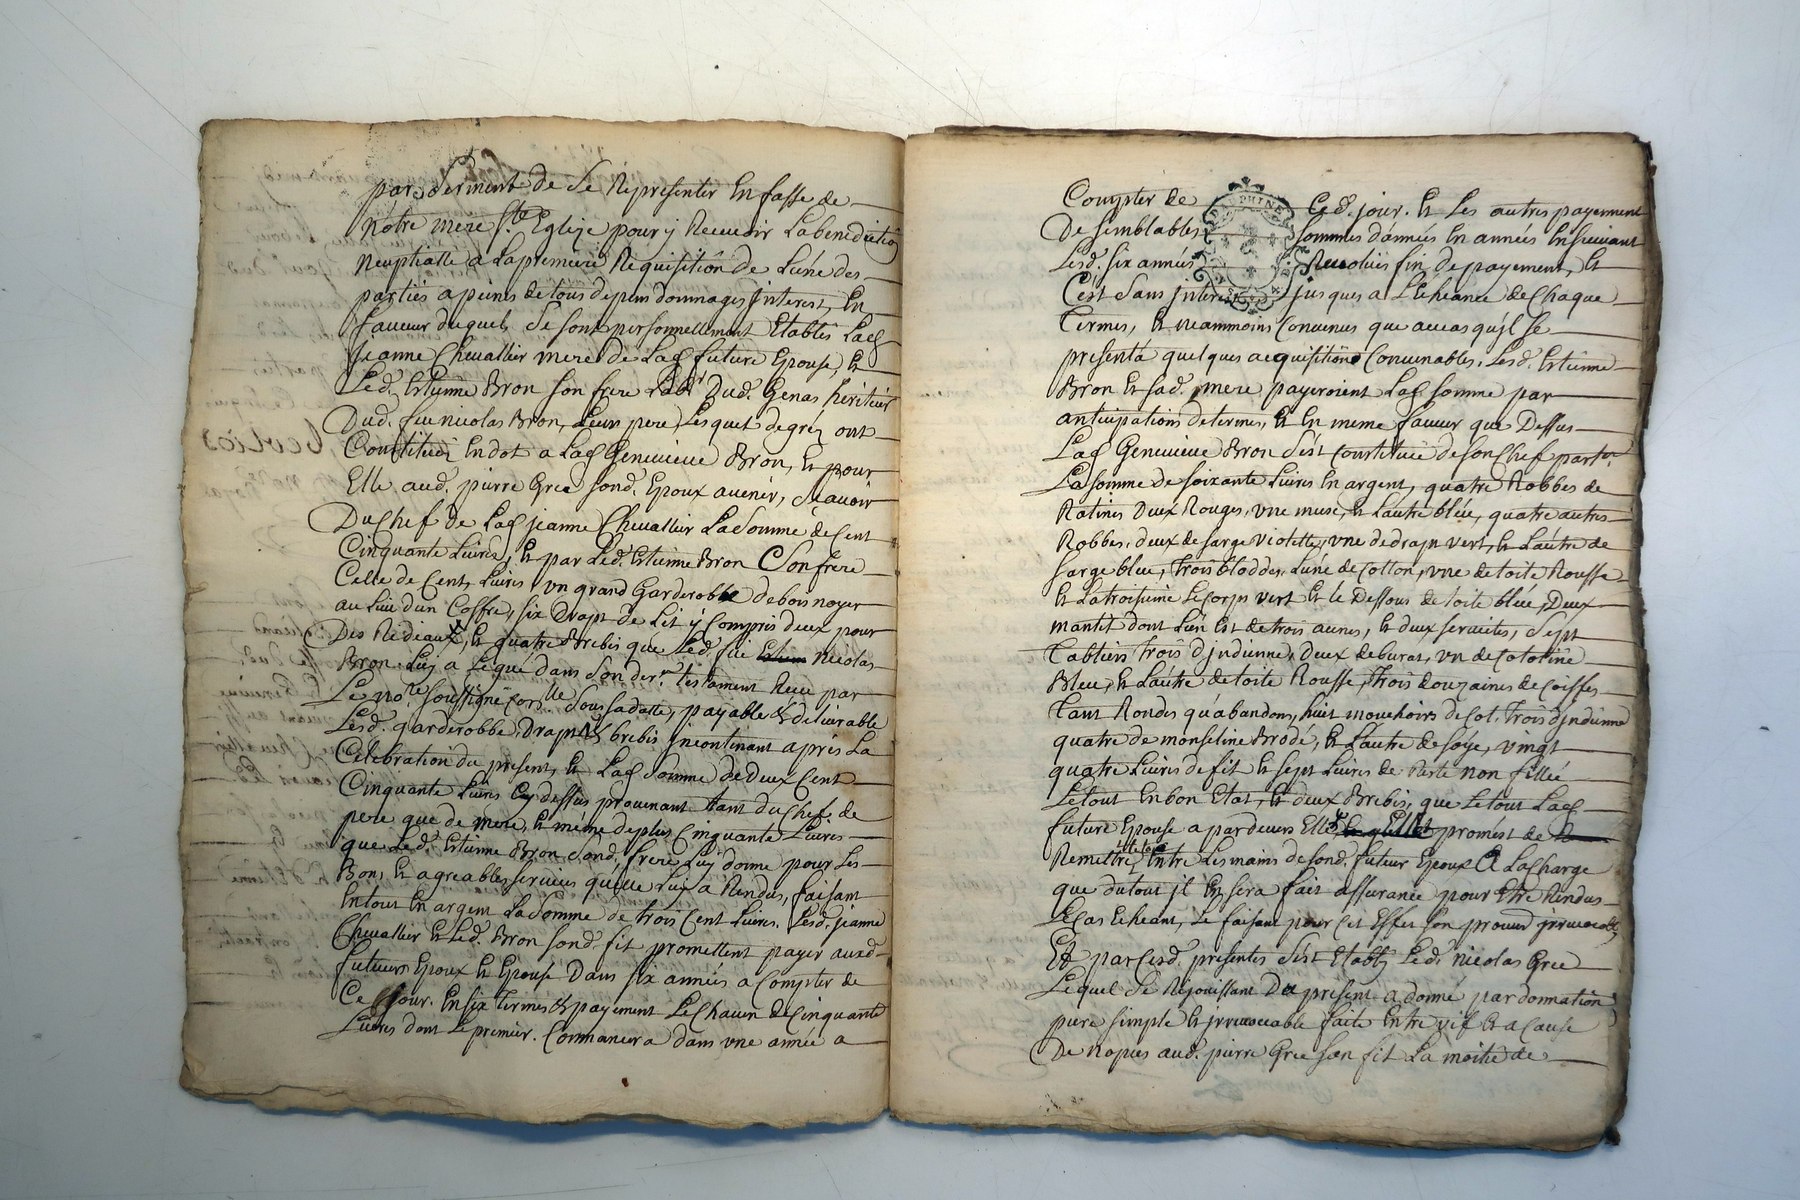 par serment de se Representer En fasse de
Notre mere Ste Eglize pour y Recevoir La benediction
Neuptialle a La premiere Requisition de L'une des
parties a peines de tous depens dommages Interest, En
faveur duquel, Se sont personnellement Etablis Lad.
Jeanne Chevallier mere de Lad future Epouse, Et
Led. Estienne Bron son frere Labr Dud. Genas héritier
Dud. feu nicolas Bron, Leur pere, Lesquels degréz ont
Constitués En dot a Lad Genevieve Bron, Et pour
Elle aud. pierre Gree Sond. Epoux avenir, Scavoir
Du Chef de Lad jeanne Chevallier La Somme de Cent
Cinquante Livres, Et par Led. Estienne Bron Son frere
Celle de Cent, Livres un grand Garderobbe de bois noyer
au Lieu d'un Coffre, six Draps de Lit y Compris deux pour
Des Rediaux, Et quatre Brebis que Led. feu nicolas
Bron Luy a Legué dans Son der. testament Reçu par
Le nore Soussigné Sous Sa datte, payable & delivrable
Lesd. garderobbe, Draps & brebis Incontinant après La
Celebration du present, Et Lad Somme de Deux Cent
Cinquante Livres Cy dessus provenant tant du Chef de
pere que de mere, Et même de plus Cinquante Livres
que Led. Estienne Bron Sond. frere Luy donne pour Les
Bons Et agreables Services qu'elle Luy a Rendus, faisant
En tout En argent La Somme de trois Cent Livres. Lesd. jeanne
Chevallier Et Led. Bron Sond. fit promettent payer auxd
futeurs Epoux Et Epouse Dans six années a Compter de
Ce Jour. En six Termes & payement Le Chacun de Cinquante
Livres dont Le premier. Commancera dans une année a
Compter de Ced. jour. Et Les autres payement
De Semblables Sommes d'années En années Ensuivant
Lesd. six années Revolues fin de payement, Et
C'est Sans Interest jusques a L'Echeance de Chaque
Termes, Et neammoins Convenus que au cas qu'il se
presenta quelques acquisitions Convenables, Lesd. Estienne
Bron Et Sad. mere payeroient Lad somme par
anticipations de termes, Et En meme faveur que Dessus
Lad Genevieve Bron S'est Constituée de Son Chef partr.
La Somme de soixante Livres En argent, quatre Robbes de
Ratines Deux Rouges, une musc, Et L'autre bléu, quatre autres
Robbes, deux de sarge violette, une de drap vert, Et L'autre de
sarge bleu, Trois bloddes, L'une de Cotton, une de toile Rousse
Et La troisieme Le Corps vert Et le Dessous de toile bléu, Deux
mantil dont L'un Est de trois aunes, Et deux serviettes, Sept
Tabliers Trois d'jndienne, Deux de burat, un de Cotoline
Bleu, Et L'autre de toile Rousse, Trois douzaines de Coiffes
Tant Rondes qu'abandons, huit mouchoirs de Col. Trois d'jndienne
quatre de mousseline Brodé, Et L'autre de soÿe, vingt
quatre Livres de fil Et sept Livres de Rste non fillée
Le tout En bon Etat, Et deux Brebis, que Le tout Lad
future Epouse a par devers Elle, promest de
Remettre Entre Les mains de Sond. futeur Epoux A La Charge
que du tout jl En sera fait assurance pour Etre Rendus
Le Cas Echeant, Le faisant pour Cet Effet Son procur jrrevocable
Et par Cesd. presentes S'est Etably Led. nicolas Gree
Lequel Se Rejouissant Du present a donné par donnation
pure simple Et jrrevocable faite Entre vif Et a Cause
De nopces aud. pierre Gree Son fit La moitié de